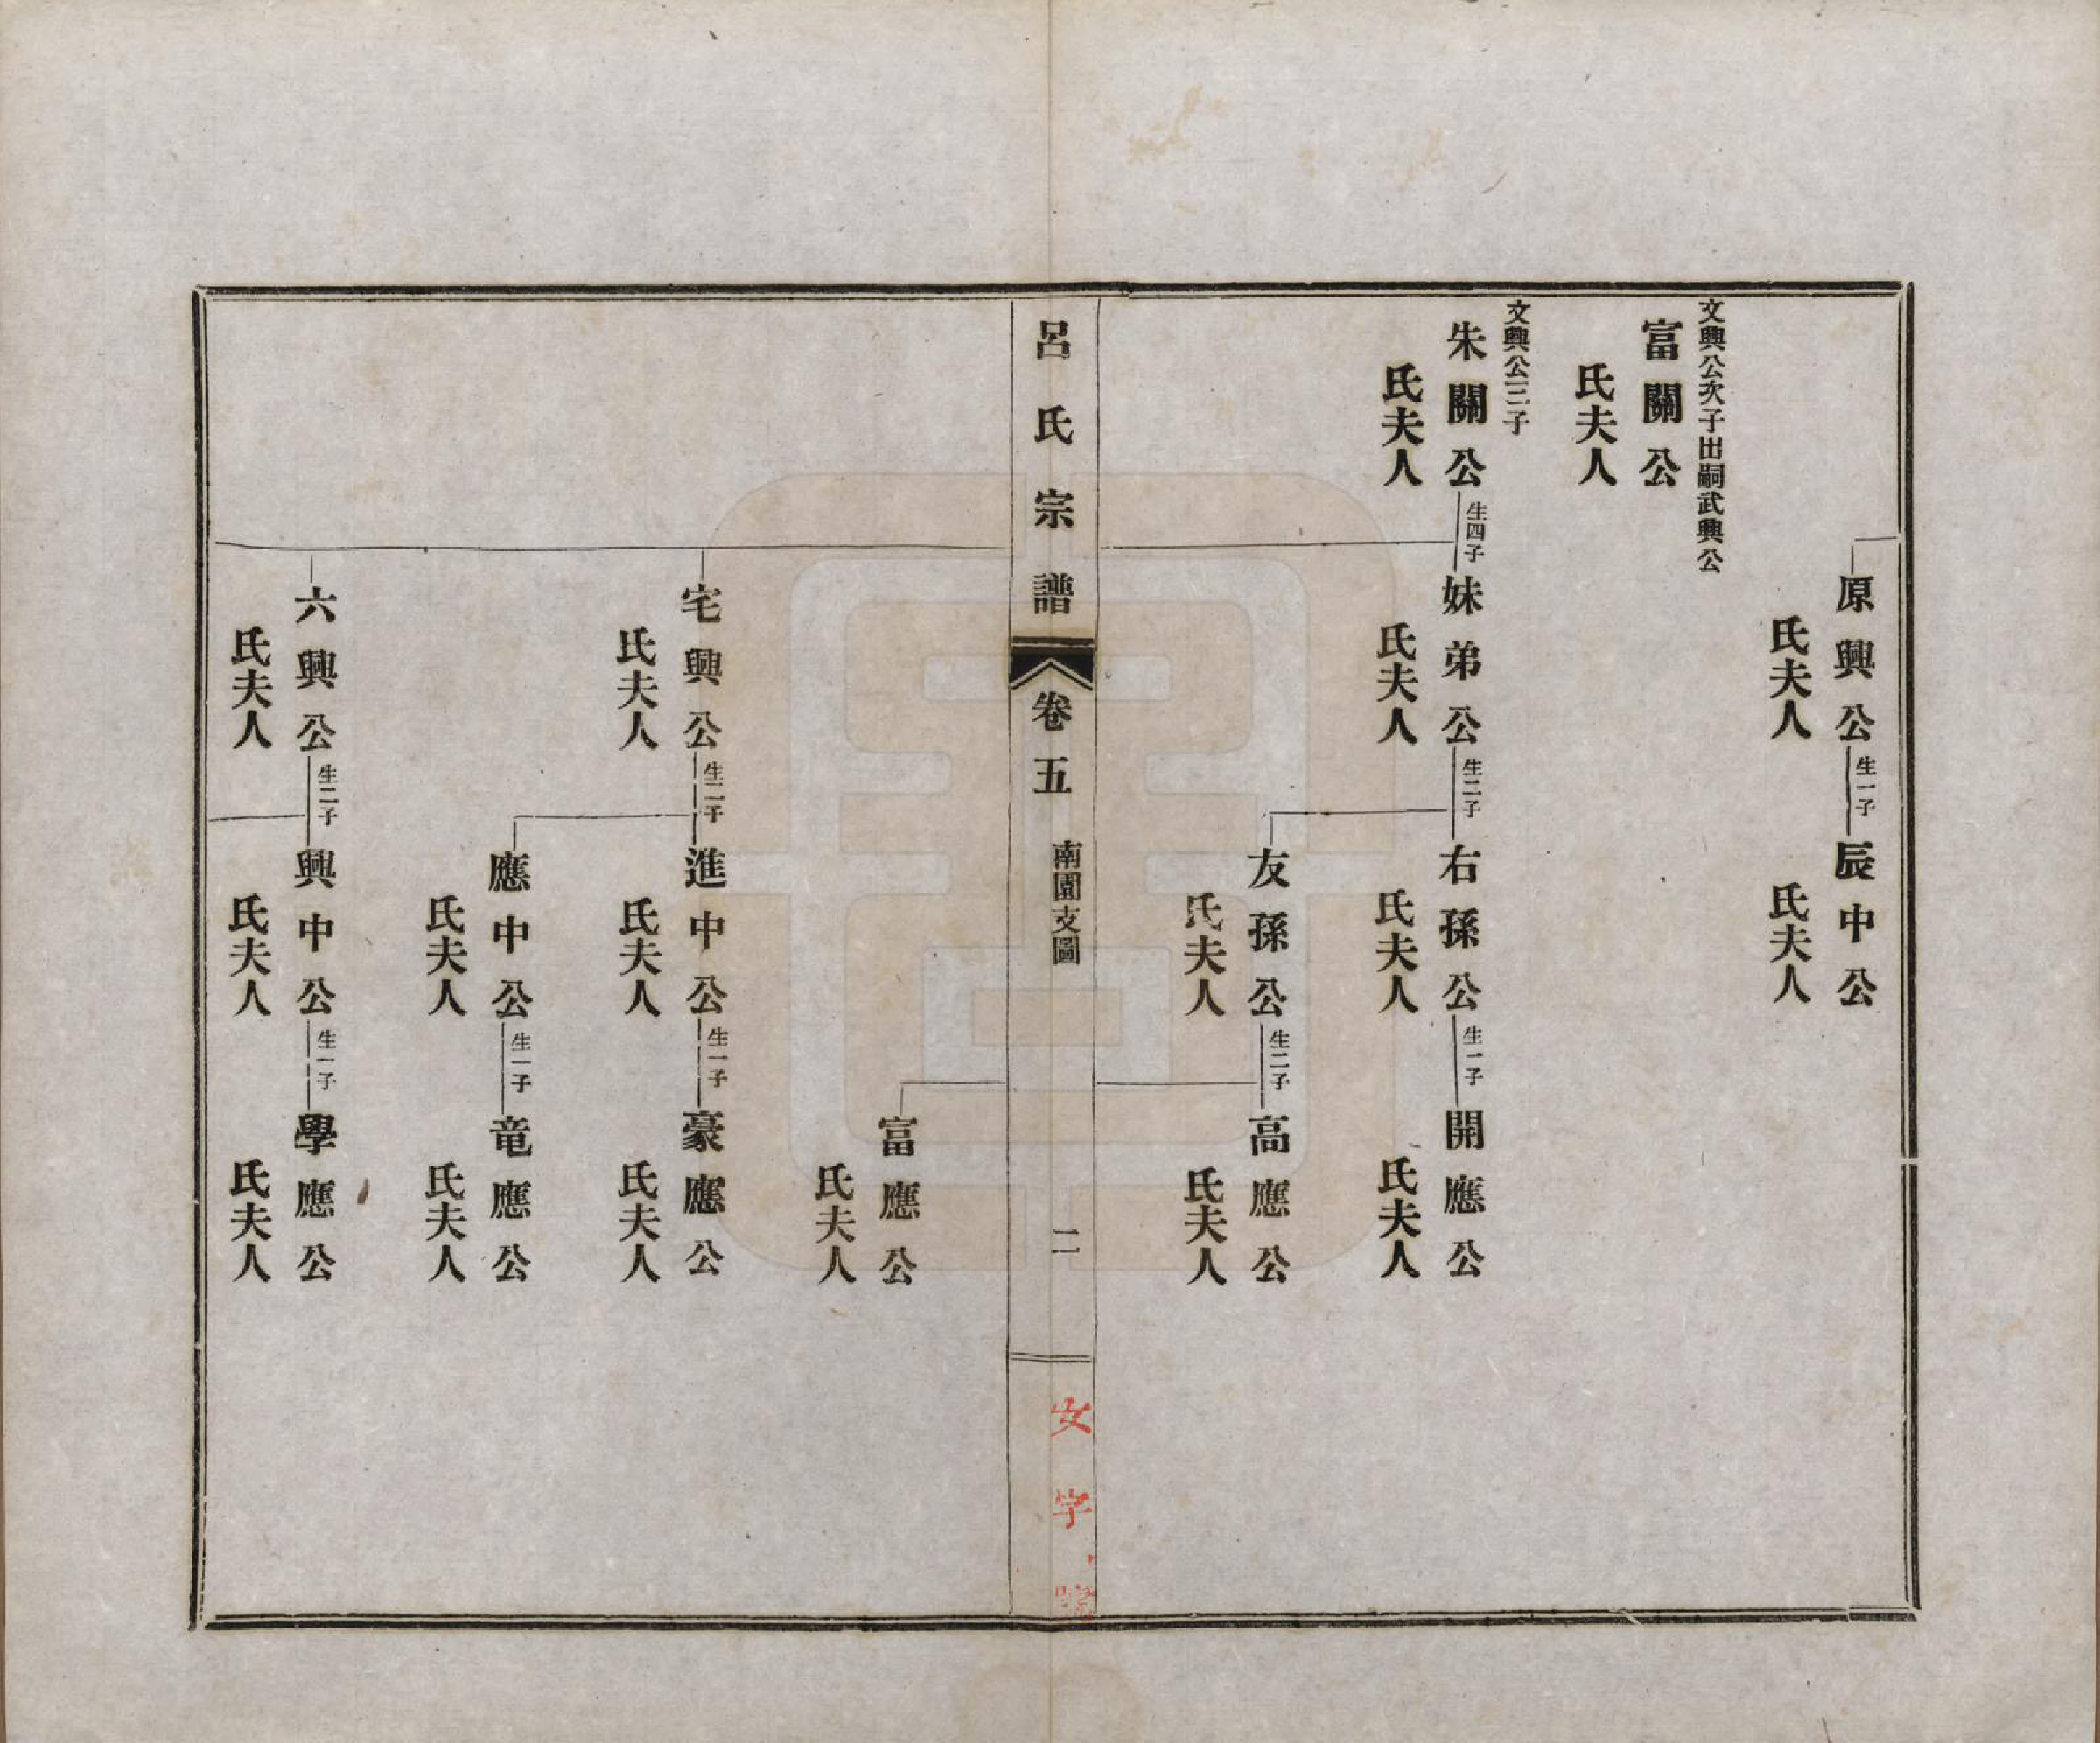 原興公
生一子
氏夫人
辰中公
氏夫人
文興公次子出嗣武興公
富關公
氏夫人
文興公三子
朱關公
生四子
氏夫人
妹弟公
生二子
氏夫人
右孫公
生一子
氏夫人
開應公
氏夫人
友孫公
生二子
氏夫人
高應公
氏夫人
呂氏宗譜
卷五
南園支圖
二
女字
富應公
氏夫人
宅興公
生二子
氏夫人
進中公
生一子
氏夫人
豪應公
氏夫人
應中公
生一子
氏夫人
竜應公
氏夫人
六興公
生二子
氏夫人
興中公
生一子
氏夫人
學應公
氏夫人